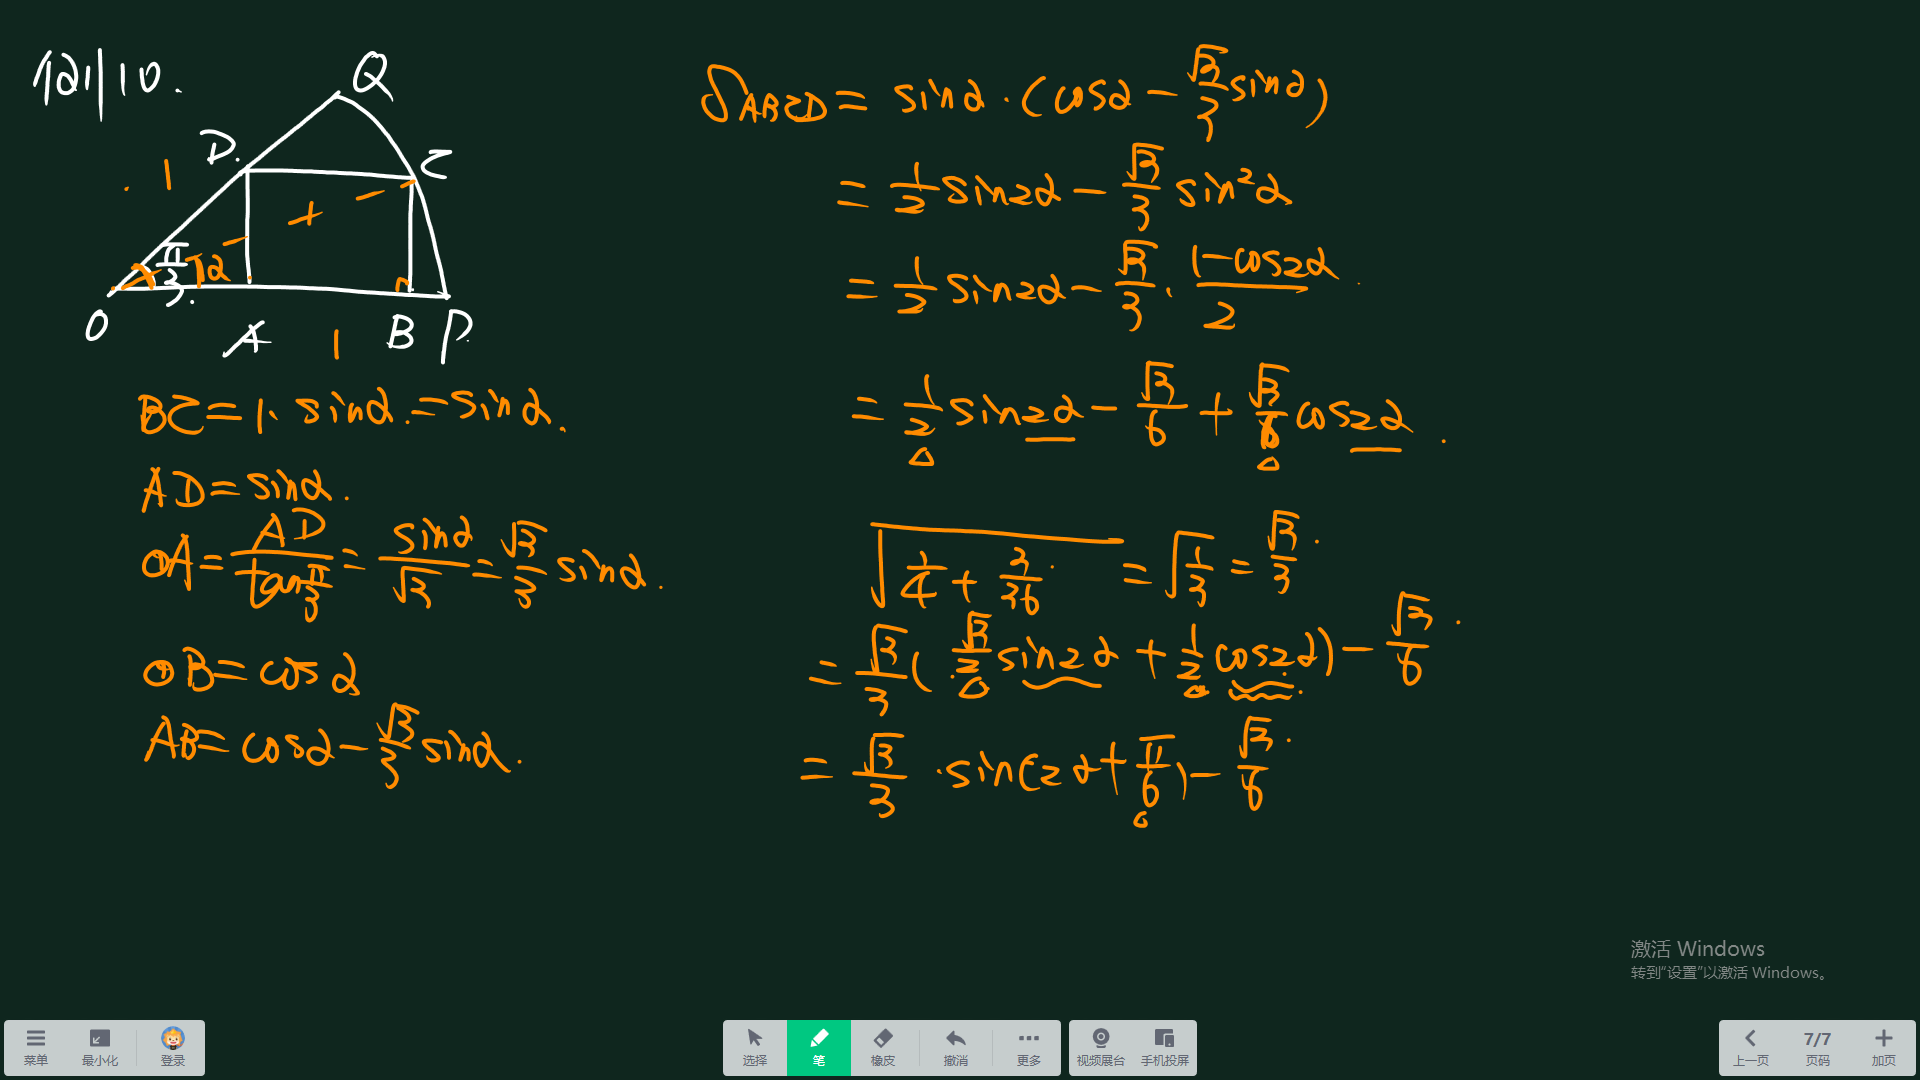 例10.
Q
D.
C
1
π/3
α
O
A
1
B
P.
BC=1·sinα.=sinα.
AD=sinα.
OA=AD/tan(π/3)=sinα/√3=√3/3 sinα.
OB=cosα
AB=cosα-√3/3 sinα.
S_ABCD=sinα·(cosα-√3/3 sinα)
=1/2 sin2α-√3/3 sin²α
=1/2 sin2α-√3/3·(1-cos2α)/2
=1/2 sin2α-√3/6+√3/6 cos2α.
√(1/4+3/36)=√(1/3)=√3/3.
=√3/3(√3/2 sin2α+1/2 cos2α)-√3/6.
=√3/3·sin(2α+π/6)-√3/6.
激活 Windows
转到“设置”以激活 Windows。
菜单 最小化 登录 选择 笔 橡皮 撤消 更多 视频展台 手机投屏 上一页 7/7 页码 加页